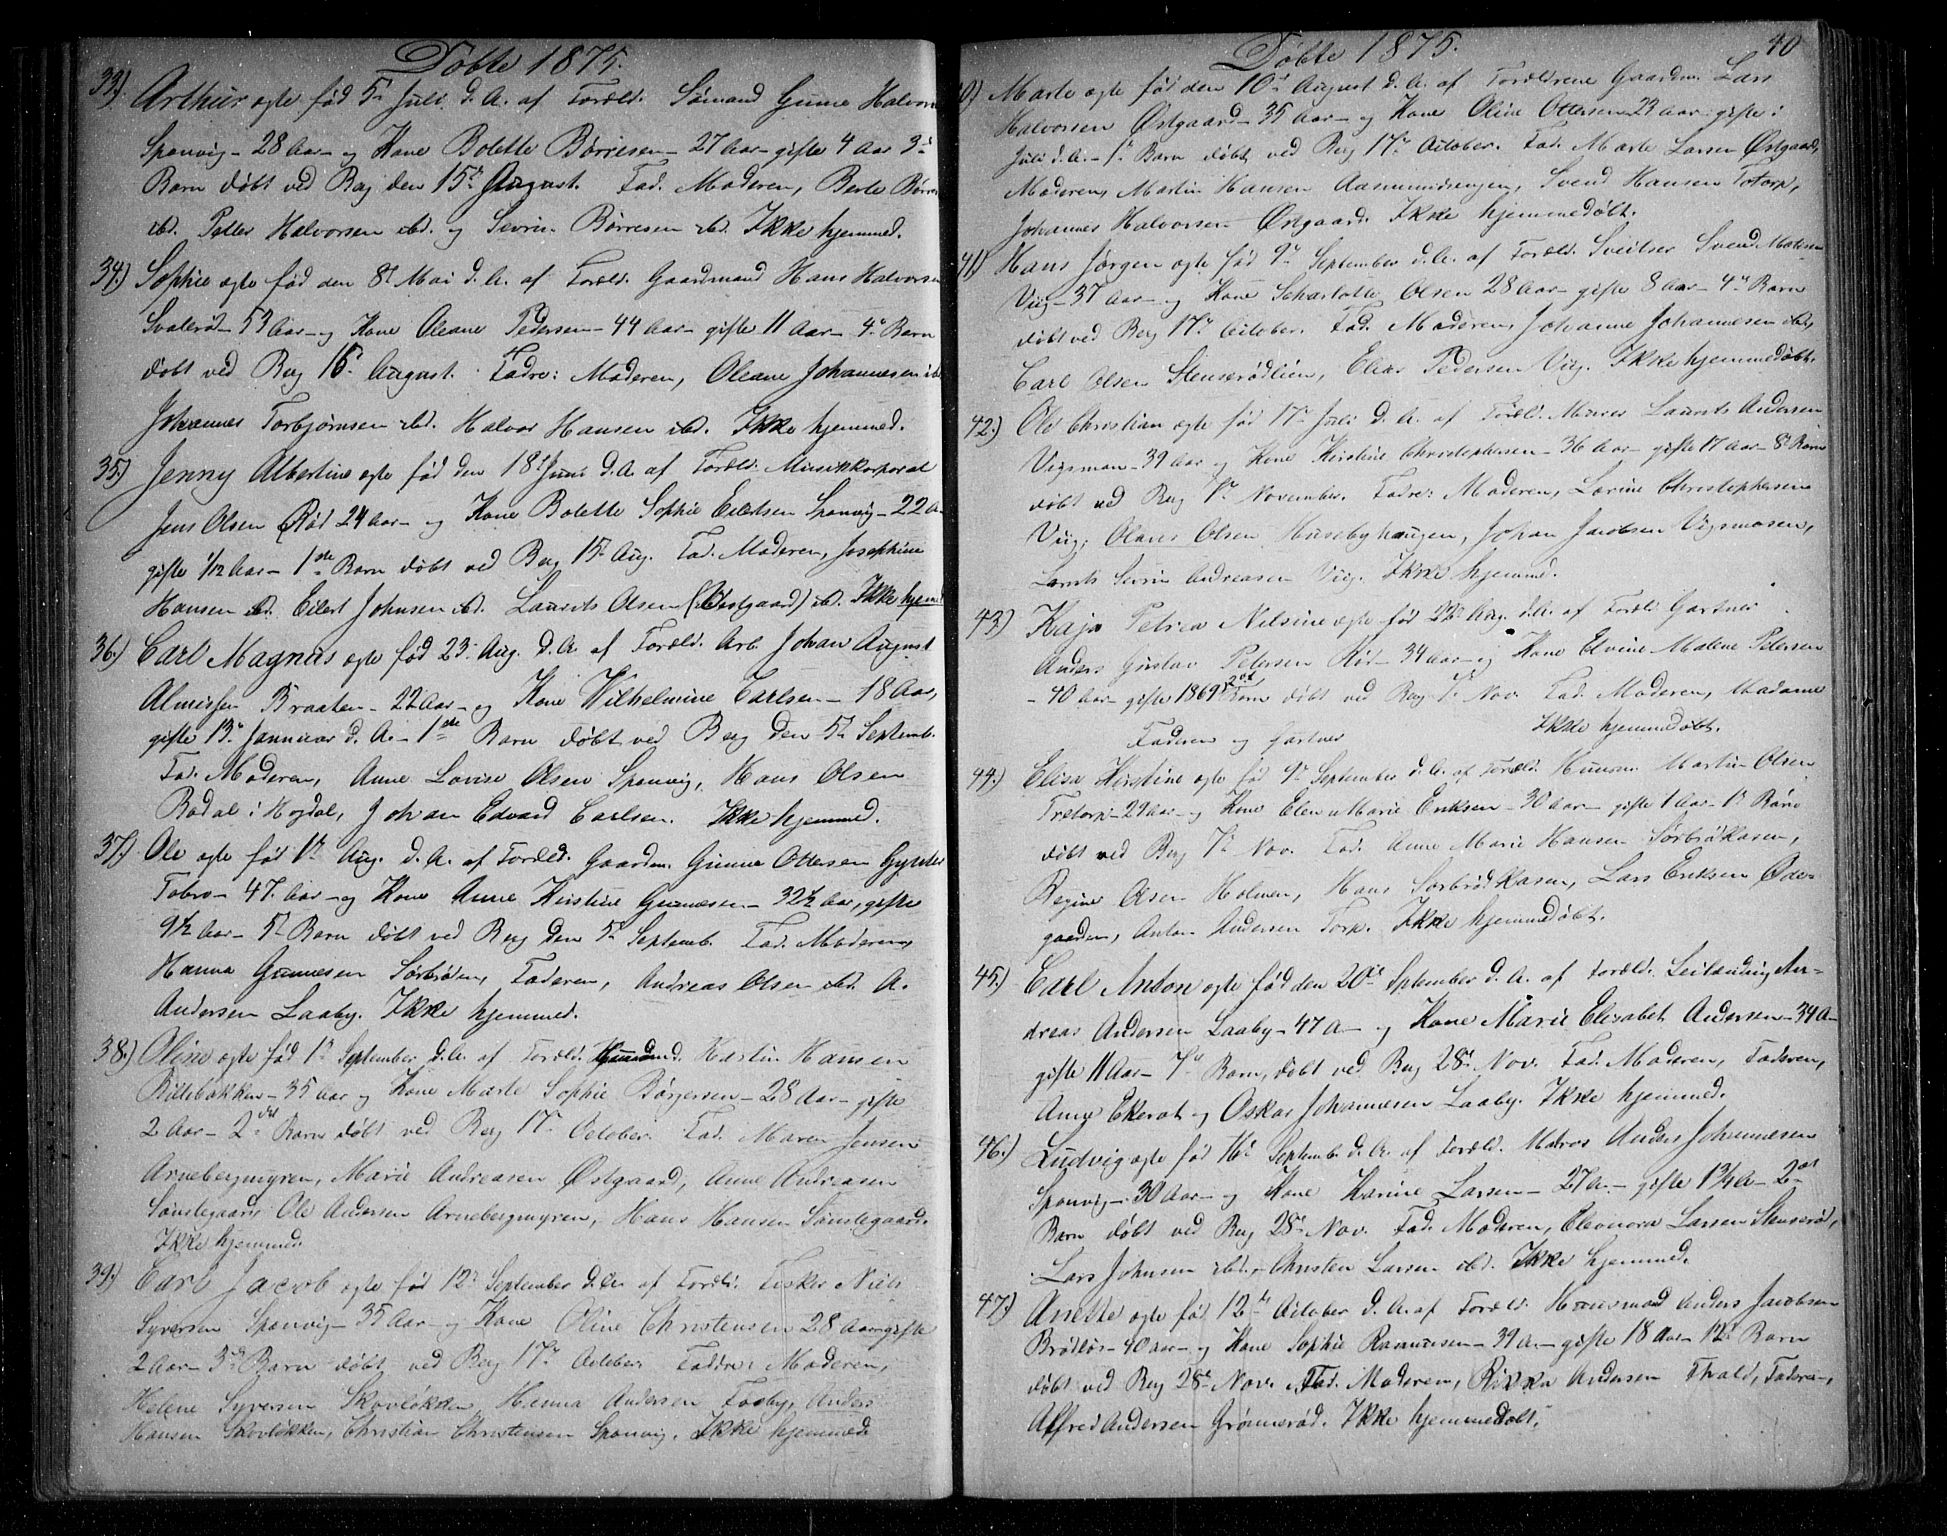 Döbte 1875.
33.) Arthur ægte fød 5te Juli d. A. af Foreld. Sömand Gunne Halvors
Sponvig - 28 Aar - og Kone Bolette Börresen - 27 Aar - gifte 4 Aar 3die
Barn döbt ved Berg den 15de August. Fad. Moderen, Berte Börre
ibd. Petter Halvorsen ibd. og Sevrin Börresen ibd. Ikke hjemmed.
34.) Sophie ægte fød den 8de Mai d. A. af Foreld. Gaardmand Hans Halvorsen
Svalerød - 53 Aar - og Kone Oleane Pedersen - 44 Aar - gifte 11 Aar - 4de Barn
döbt ved Berg 15de August. Fadre: Moderen, Oleane Johannesen ibd
Johannes Torbjörnsen ibd. Halvor Hansen ibd. Ikke hjemmed.
35.) Jenny Albertine ægte fød den 18de Juni d. A. af Foreld. Musikkorporal
Jens Olsen Röd 24 Aar - og Kone Bolette Sophie Eilertsen Sponvig - 22 A
gifte 1/12 Aar - 1ste Barn döbt ved Berg 15de Aug. Fad. Moderen, Josephine
Hansen ibd. Eilert Johnsen ibd. Laurits Olsen (Östgaard) ibd. Ikke hjemd
36.) Carl Magnus ægte fød 23. Aug. d. A. af Foreld. Arb. Johan August
Almissen Braaten - 22 Aar - og Kone Wilhelmine Carlsen - 18 Aar,
gifte 13de Januar d. A. - 1ste Barn döbt ved Berg den 5te Septemb.
Fad. Moderen, Anne Lovise Olsen Sponvig, Hans Olsen
Badal i Hogdal, Johan Edvard Carlsen. Ikke hjemmed.
37.) Ole ægte fød 1ste Aug. d. A. af Foreld. Gaardm. Gunne Ottersen
Tobro - 47 Aar - og Kone Anne Kirstine Gunnesen - 32½ Aar, gifte
9½ Aar - 5te Barn döbt ved Berg den 5te Septemb. Fad. Moderen,
Hanna Gunnesen Sörbröden, Faderen, Andreas Olsen ibd. A.
Andersen Laaby. Ikke hjemmed.
38.) Oline ægte fød 1ste September d. A. af Foreld. Huusmd. Martin Hansen
Billebakken - 35 Aar og Kone Marte Sophie Börgersen - 28 Aar - gifte
2 Aar - 2det Barn döbt ved Berg 17de October. Fad. Maren Jensen
Arnebergmyren, Marie Andreasen Östgaard, Anne Andreasen
Sönstegaard Ole Andersen Arnebergmyren, Hans Hansen Sönstegaard.
Ikke hjemmed.
39.) Carl Jacob ægte fød 12te September d. A. af Foreld. Fisker Niels
Syversen Sponvig - 35 Aar - og Kone Oline Christensen 28 Aar gifte
2 Aar - 3die Barn döbt ved Berg 17de October Faddre: Moderen,
Helene Syversen Skovlökken Henna Andersen Anders
Hansen Skovlökken, Christian Christensen Sponvig. Ikke hjemmed.
Döbte 1875. 40
40) Marte ægte fød den 10de August d. A. af Foreldrene Gaardm. Lars
Halvorsen Östgaard - 35 Aar - og Kone Oline Ottersen 23 Aar - gifte i
Juli d. A. - 1ste Barn döbt ved Berg 17de October. Fad. Marte Larsen Östgaard,
Moderen, Martin Hansen Aasmundrengen, Svend Hansen Totorp,
Johannes Halvorsen Östgaard. Ikke hjemmedöbt.
41) Hans Jörgen ægte fød 9de September d. A. af Foreld. Sveitser Svend
Viig - 37 Aar - og Kone Scharlotte Olsen 28 Aar - gifte 8 Aar - 4de Barn
döbt ved Berg 17de October. Fad. Moderen, Johanne Johannesen ibd,
Carl Olsen Stenserödlien, Elias Pedersen Viig. Ikke hjemmedöbt.
42.) Ole Christian ægte fød 17de Juli d. A. af Foreld. Murer Laurits Andersen
Vigsmon - 39 Aar og Kone Kirstine Christophersen - 36 Aar - gifte 17 Aar - 8de Barn
döbt ved Berg 7de November. Fadre: Moderen, Lovine Christophersen
Viig, Olaves Olsen Husebyhaugen, Johan Jacobsen Vigsmosen,
Lorents Sevrin Andreasen Viig. Ikke hjemmed.
43.) Kaja Petrea Nilsine ægte fød 22de Aug. d. A. af Foreld. Gartner
Anders Gustav Petersen Röd - 34 Aar - og Kone Elvine Malene Petersen
- 40 Aar - gifte 1869 2det Barn döbt ved Berg 7de Nov. Fad. Moderen, Madame
Faderen og Gartner Ikke hjemmedöbt.
44.) Elise Kirstine ægte fød 9de September d. A. af Foreld. Huusm. Martin Olsen
Tretorp - 29 Aar - og Kone Elen Marie Eriksen - 30 Aar - gifte 1 Aar - 1ste Barn
döbt ved Berg 7de Nov. Fad. Anne Marie Hansen Sörbrökasen,
Regine Olsen Holmen, Hans Sörbrödkasen, Lars Eriksen Öde-
gaarden, Anton Andersen Torp. Ikke hjemmedöbt.
45.) Carl Anton ægte fød den 20de September d. A. af Foreld. Leilænding An-
dreas Andersen Laaby - 47 A - og Kone Marie Elisabet Andersen - 34 A -
gifte 11 Aar - 7de Barn, döbt ved Berg 28de Nov. Fad. Moderen, Faderen,
Anne Ekerat og Oskar Johannesen Laaby. Ikke hjemmed.
46.) Ludvig ægte fød 16de Septemb. d. A. af Foreld. Matros Anders Johannesen
Sponvig - 30 Aar - og Kone Karine Larsen - 27 A. - gifte 1¾ A - 2det
Barn döbt ved Berg 28de Nov. Fad. Moderen, Eleonora Larsen Stenseröd,
Lars Johnsen ibd. - Christen Larsen ibd. Ikke hjemmed.
47.) Anette ægte fød 12te October d. A. af Foreld. Huusmand Anders Jacobsen
Brödlös - 40 Aar - og Kone Sophie Rasmussen - 39 A. - gifte 18 Aar 12te Barn
döbt ved Berg 28de Nov. Fad. Moderen, Rikka Andersen Faderen,
Alfred Andersen Grönneröd. Ikke hjemmedöbt.